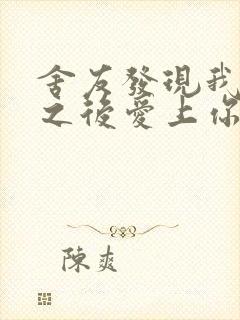 舍友發現我
之後愛上你
陳爽